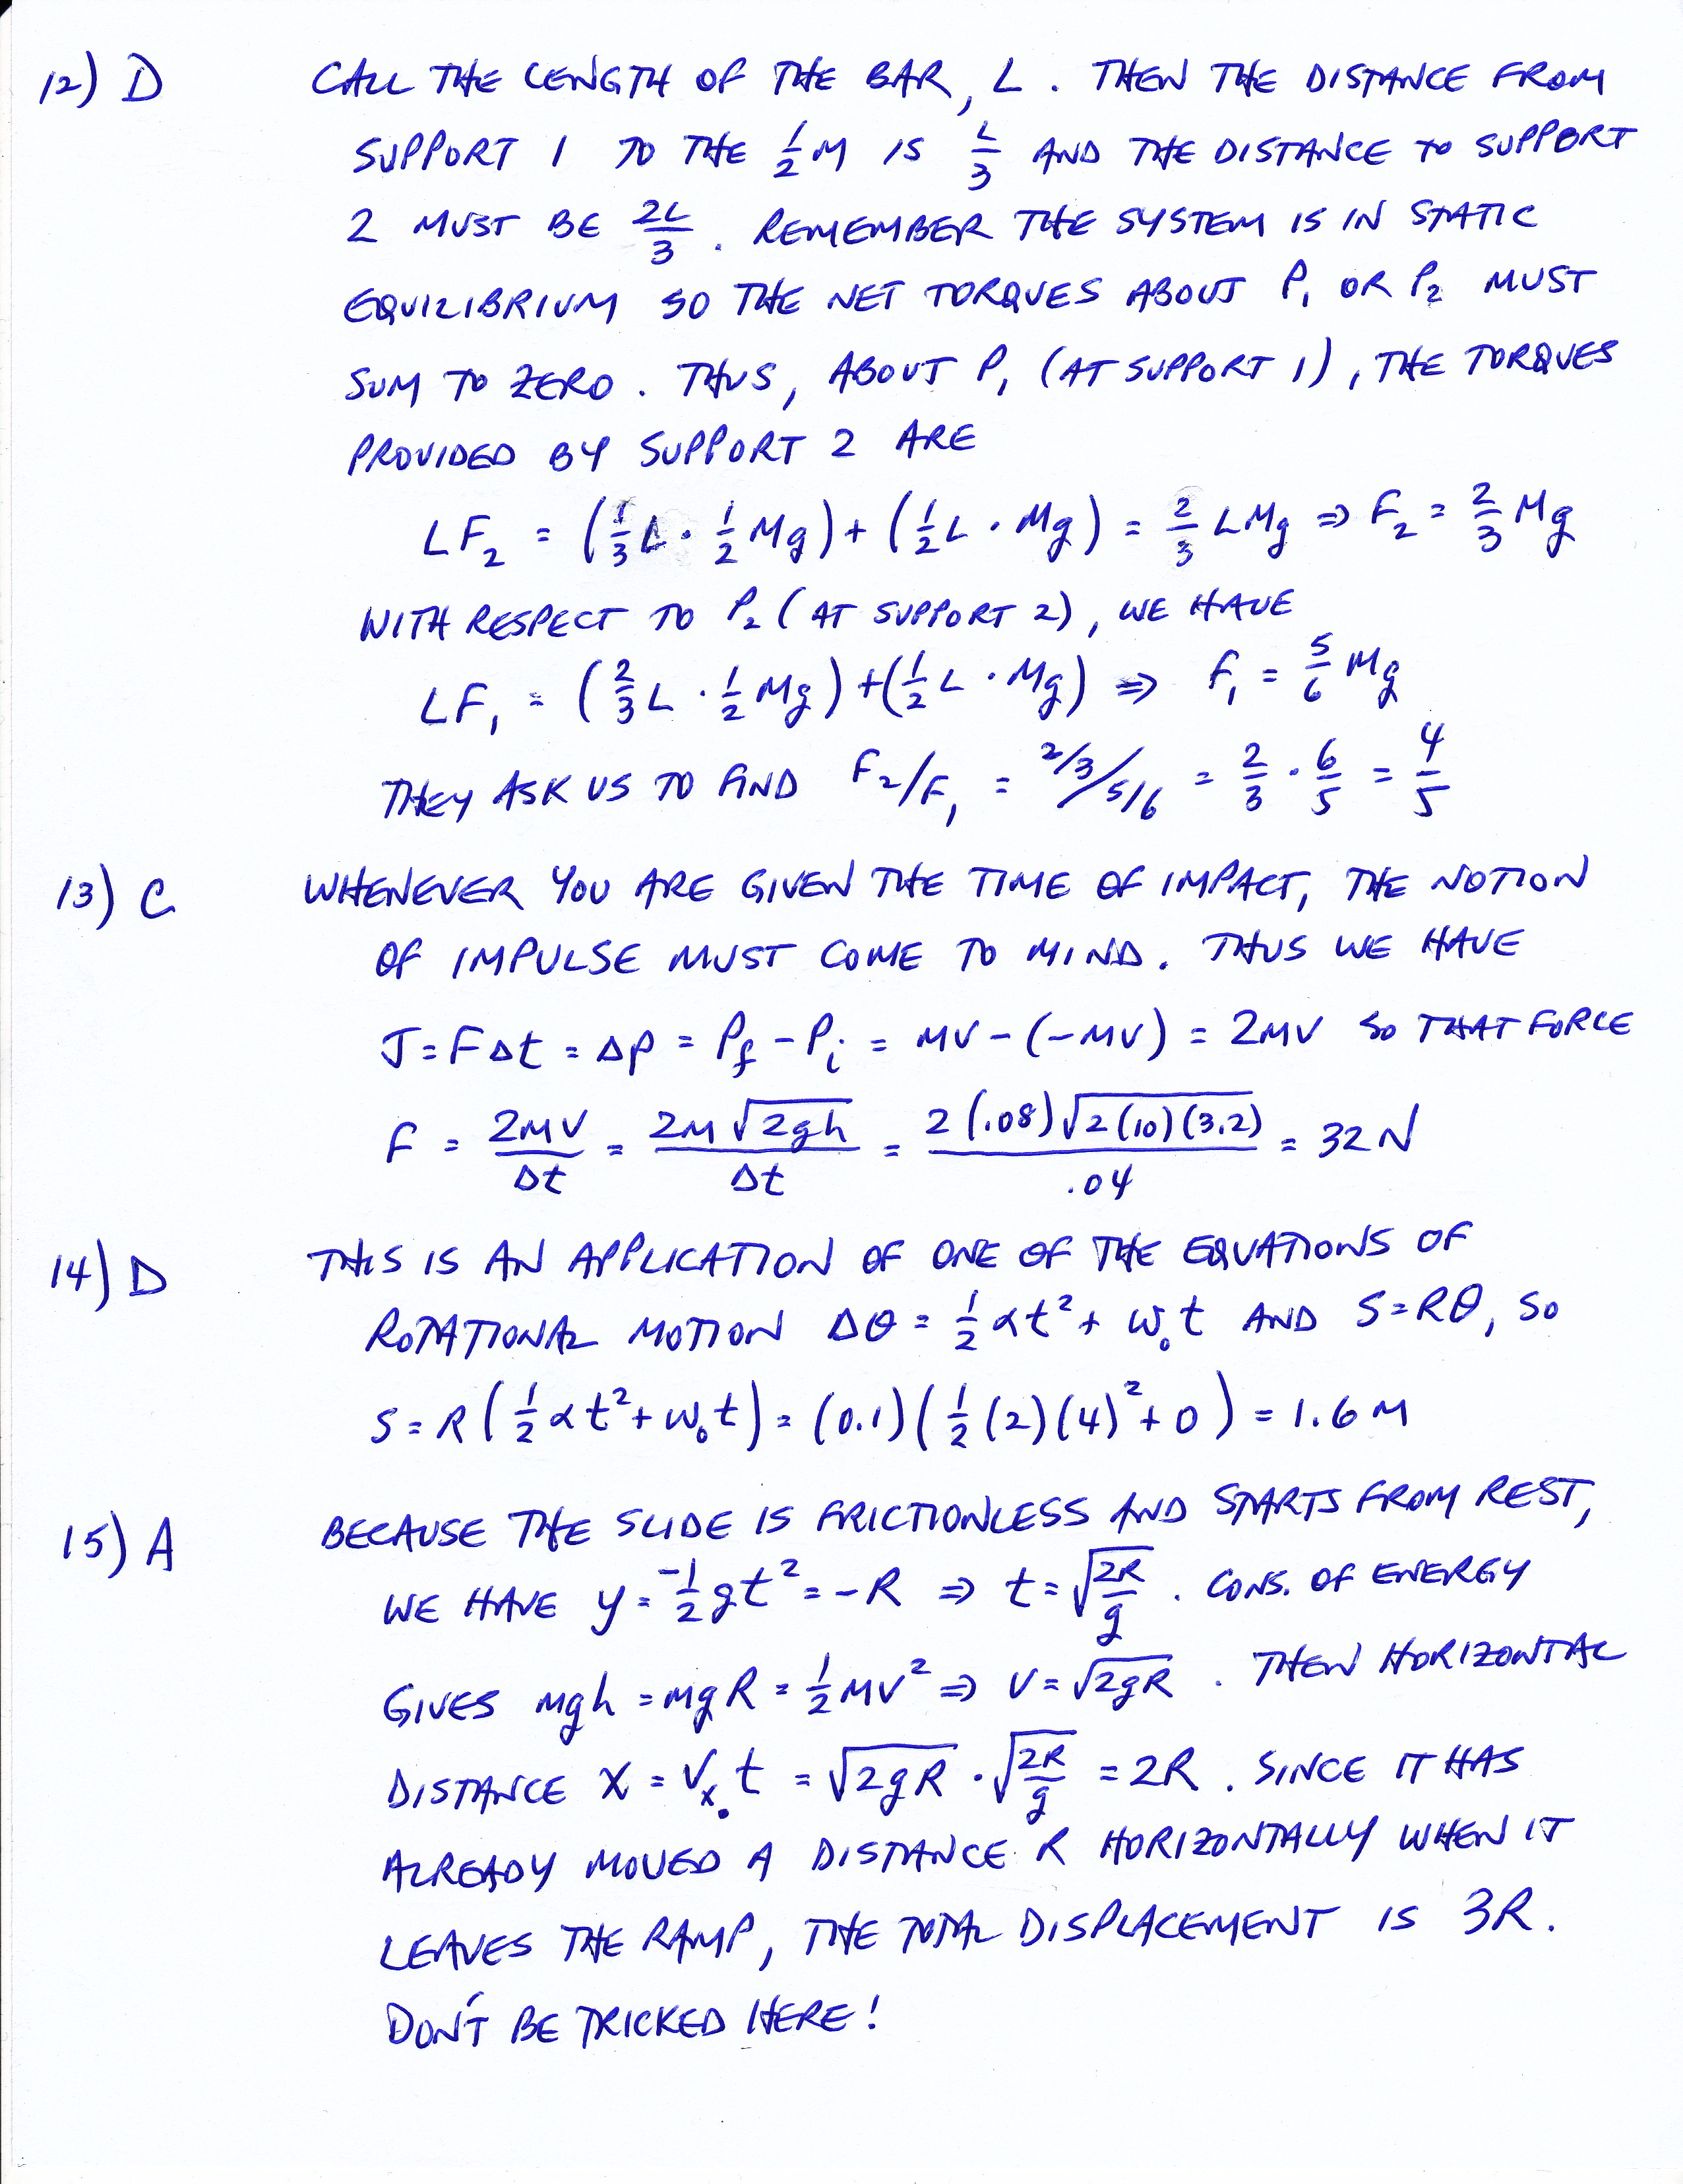 12) D CALL THE LENGTH OF THE BAR, L. THEN THE DISTANCE FROM
SUPPORT 1 TO THE ½M IS L/3 AND THE DISTANCE TO SUPPORT
2 MUST BE 2L/3. REMEMBER THE SYSTEM IS IN STATIC
EQUILIBRIUM SO THE NET TORQUES ABOUT P₁ OR P₂ MUST
SUM TO ZERO. THUS, ABOUT P₁ (AT SUPPORT 1), THE TORQUES
PROVIDED BY SUPPORT 2 ARE
LF₂ = (1/3 L · 1/2 Mg) + (1/2 L · Mg) = 2/3 LMg ⇒ F₂ = 2/3 Mg
WITH RESPECT TO P₂ (AT SUPPORT 2), WE HAVE
LF₁ = (2/3 L · 1/2 Mg) + (1/2 L · Mg) ⇒ F₁ = 5/6 Mg
THEY ASK US TO FIND F₂/F₁ = 2/3/5/6 = 2/3 · 6/5 = 4/5
13) C WHENEVER YOU ARE GIVEN THE TIME OF IMPACT, THE NOTION
OF IMPULSE MUST COME TO MIND. THUS WE HAVE
J = FΔt = Δp = Pf - Pi = MV - (-MV) = 2MV SO THAT FORCE
F = 2MV/Δt = 2M√(2gh)/Δt = 2(.08)√(2(10)(3.2))/.04 = 32N
14) D THIS IS AN APPLICATION OF ONE OF THE EQUATIONS OF
ROTATIONAL MOTION Δθ = ½αt² + ω₀t AND S=Rθ, SO
S = R(½αt² + ω₀t) = (0.1)(½(2)(4)² + 0) = 1.6M
15) A BECAUSE THE SLIDE IS FRICTIONLESS AND STARTS FROM REST,
WE HAVE y = -½gt² = -R ⇒ t = √(2R/g). CONS. OF ENERGY
GIVES mgh = mgR = ½MV² ⇒ V = √(2gR). THEN HORIZONTAL
DISTANCE X = Vx₀t = √(2gR) · √(2R/g) = 2R. SINCE IT HAS
ALREADY MOVED A DISTANCE R HORIZONTALLY WHEN IT
LEAVES THE RAMP, THE TOTAL DISPLACEMENT IS 3R.
DON'T BE TRICKED HERE!